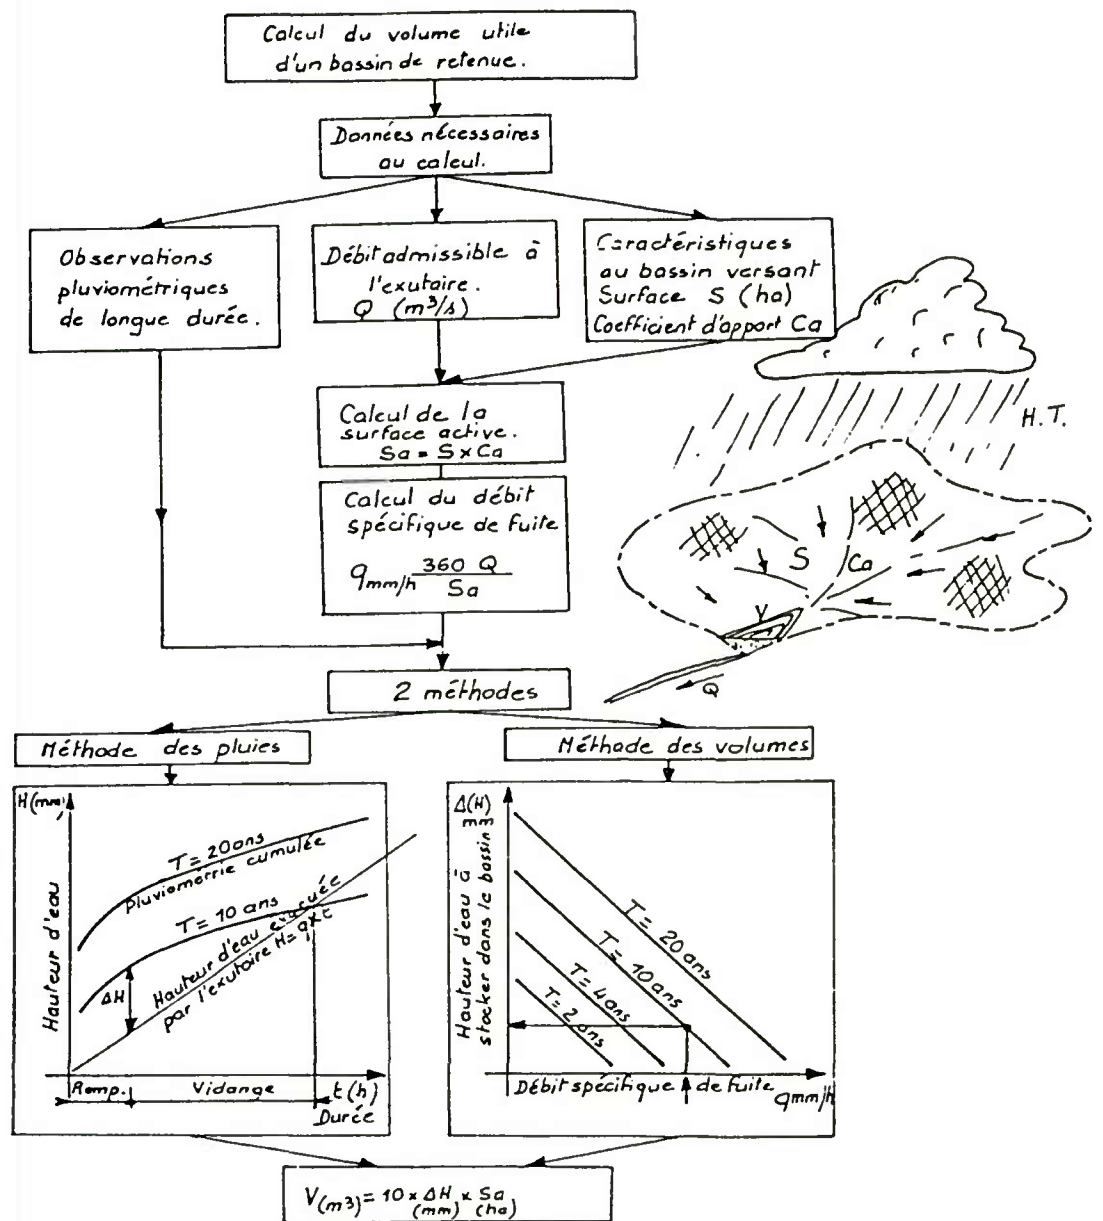 Calcul du volume utile
d'un bassin de retenue.
Données nécessaires
au calcul.
Observations
pluviométriques
de longue durée.
Débit admissible à
l'exutoire.
Q (m³/s)
Caractéristiques
au bassin versant
Surface S (ha)
Coefficient d'apport Ca
H.T.
Calcul de la
surface active.
Sa = S x Ca
Calcul du débit
spécifique de fuite
qmm/h 360 Q
Sa
S
Ca
V
Q
2 méthodes
Méthode des pluies
Méthode des volumes
H(mm)
Hauteur d'eau
T = 20 ans
pluviométrie cumulée
T = 10 ans
Hauteur d'eau évacuée
par l'exutoire H = q x t
ΔH
Remp.
Vidange
t (h)
Durée
Δ(H)
mm
Hauteur d'eau à
stocker dans le bassin
T = 20 ans
T = 10 ans
T = 4 ans
T = 2 ans
Débit spécifique de fuite
qmm/h
V(m3) = 10 x ΔH x Sa
(mm) (ha)